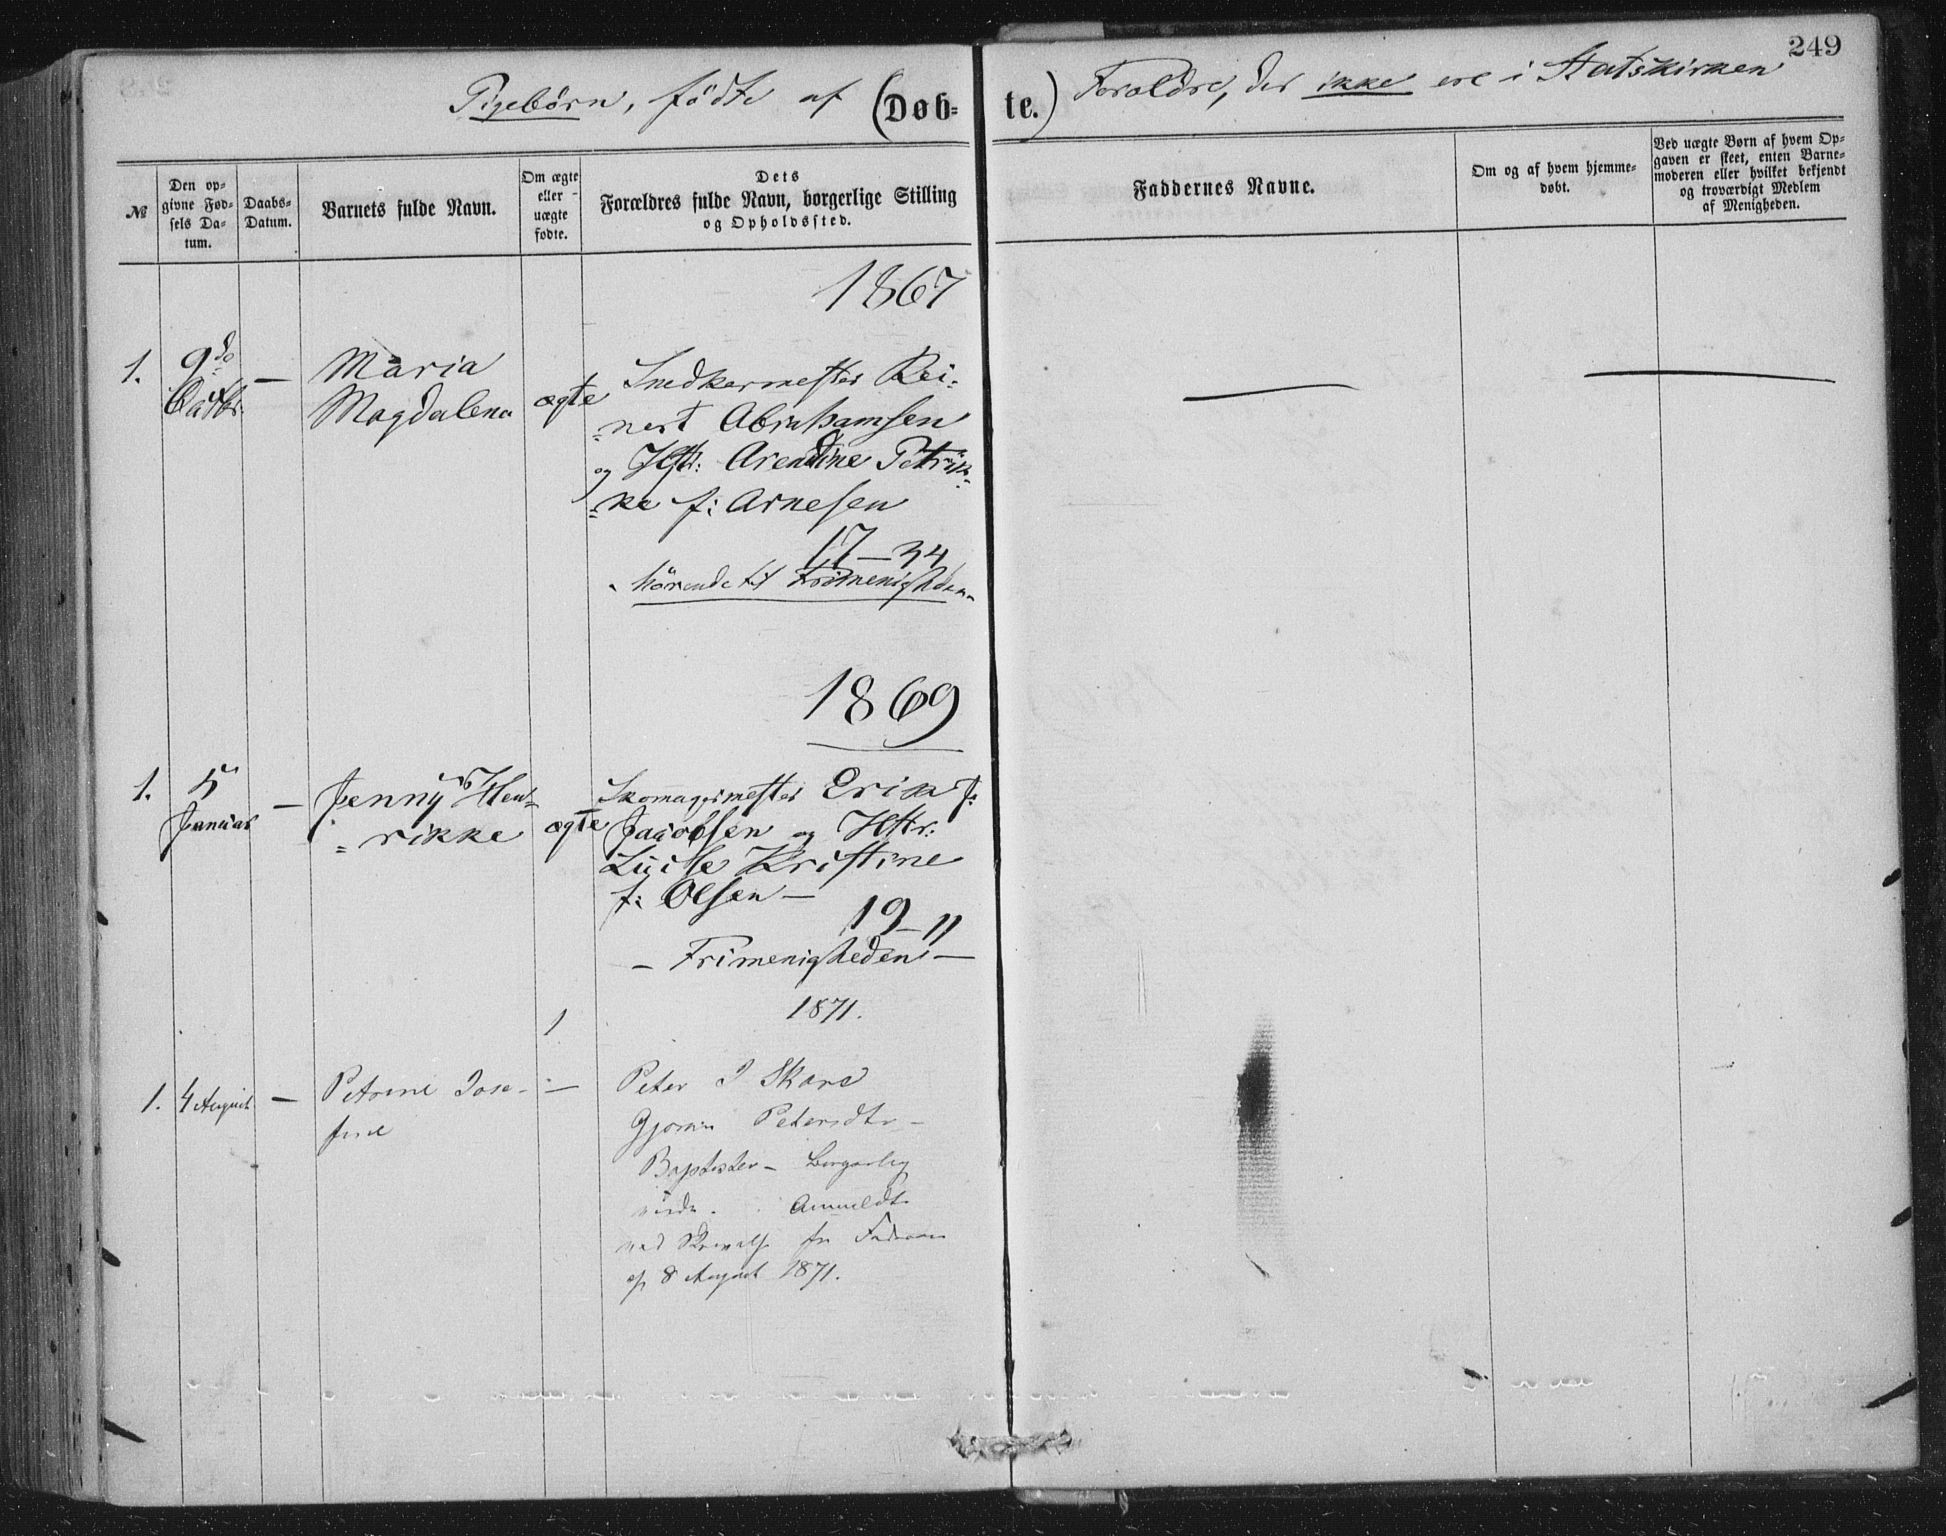 249
Pigebørn, fødte af (Døb- te.) Forældre, der ikke ere i Statskirken
№
Den op-
givne Fød-
sels Da-
tum.
Daabs-
Datum.
Barnets fulde Navn.
Om ægte
eller
uægte
fødte.
Dets
Forældres fulde Navn, borgerlige Stilling
og Opholdssted.
Faddernes Navne.
Om og af hvem hjemme-
døbt.
Ved uægte Børn af hvem Op-
gaven er skeet, enten Barne-
moderen eller hvilket bekjendt
og troværdigt Medlem
af Menigheden.
1867
1.
9de
Octbr.
—
Maria
Magdalena
ægte
Snedkermester Rei-
nert Abrahamsen
og Hstr: Arentine Petrik-
ke f: Arnesen
17—34
hörende til Frimenigheden
1869
1.
5
Januar
—
Jenny Hen-
rikke
ægte
Skomagermester Erik J:
Jacobsen og Hstr:
Luise Kristine
f: Olsen —
19—11
— Frimenigheden —
1871.
1
1.
4 August
—
Petrine Jose-
fine
—
Peter J Skare
Petersdtr —
Baptister — Borgerlig
viede. Anmeldt
ved Skrivelse fra Faderen
af 8 August 1871.